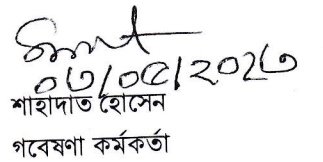 ০৩/০৫/২০২৩
শাহাদাত হোসেন
গবেষণা কর্মকর্তা